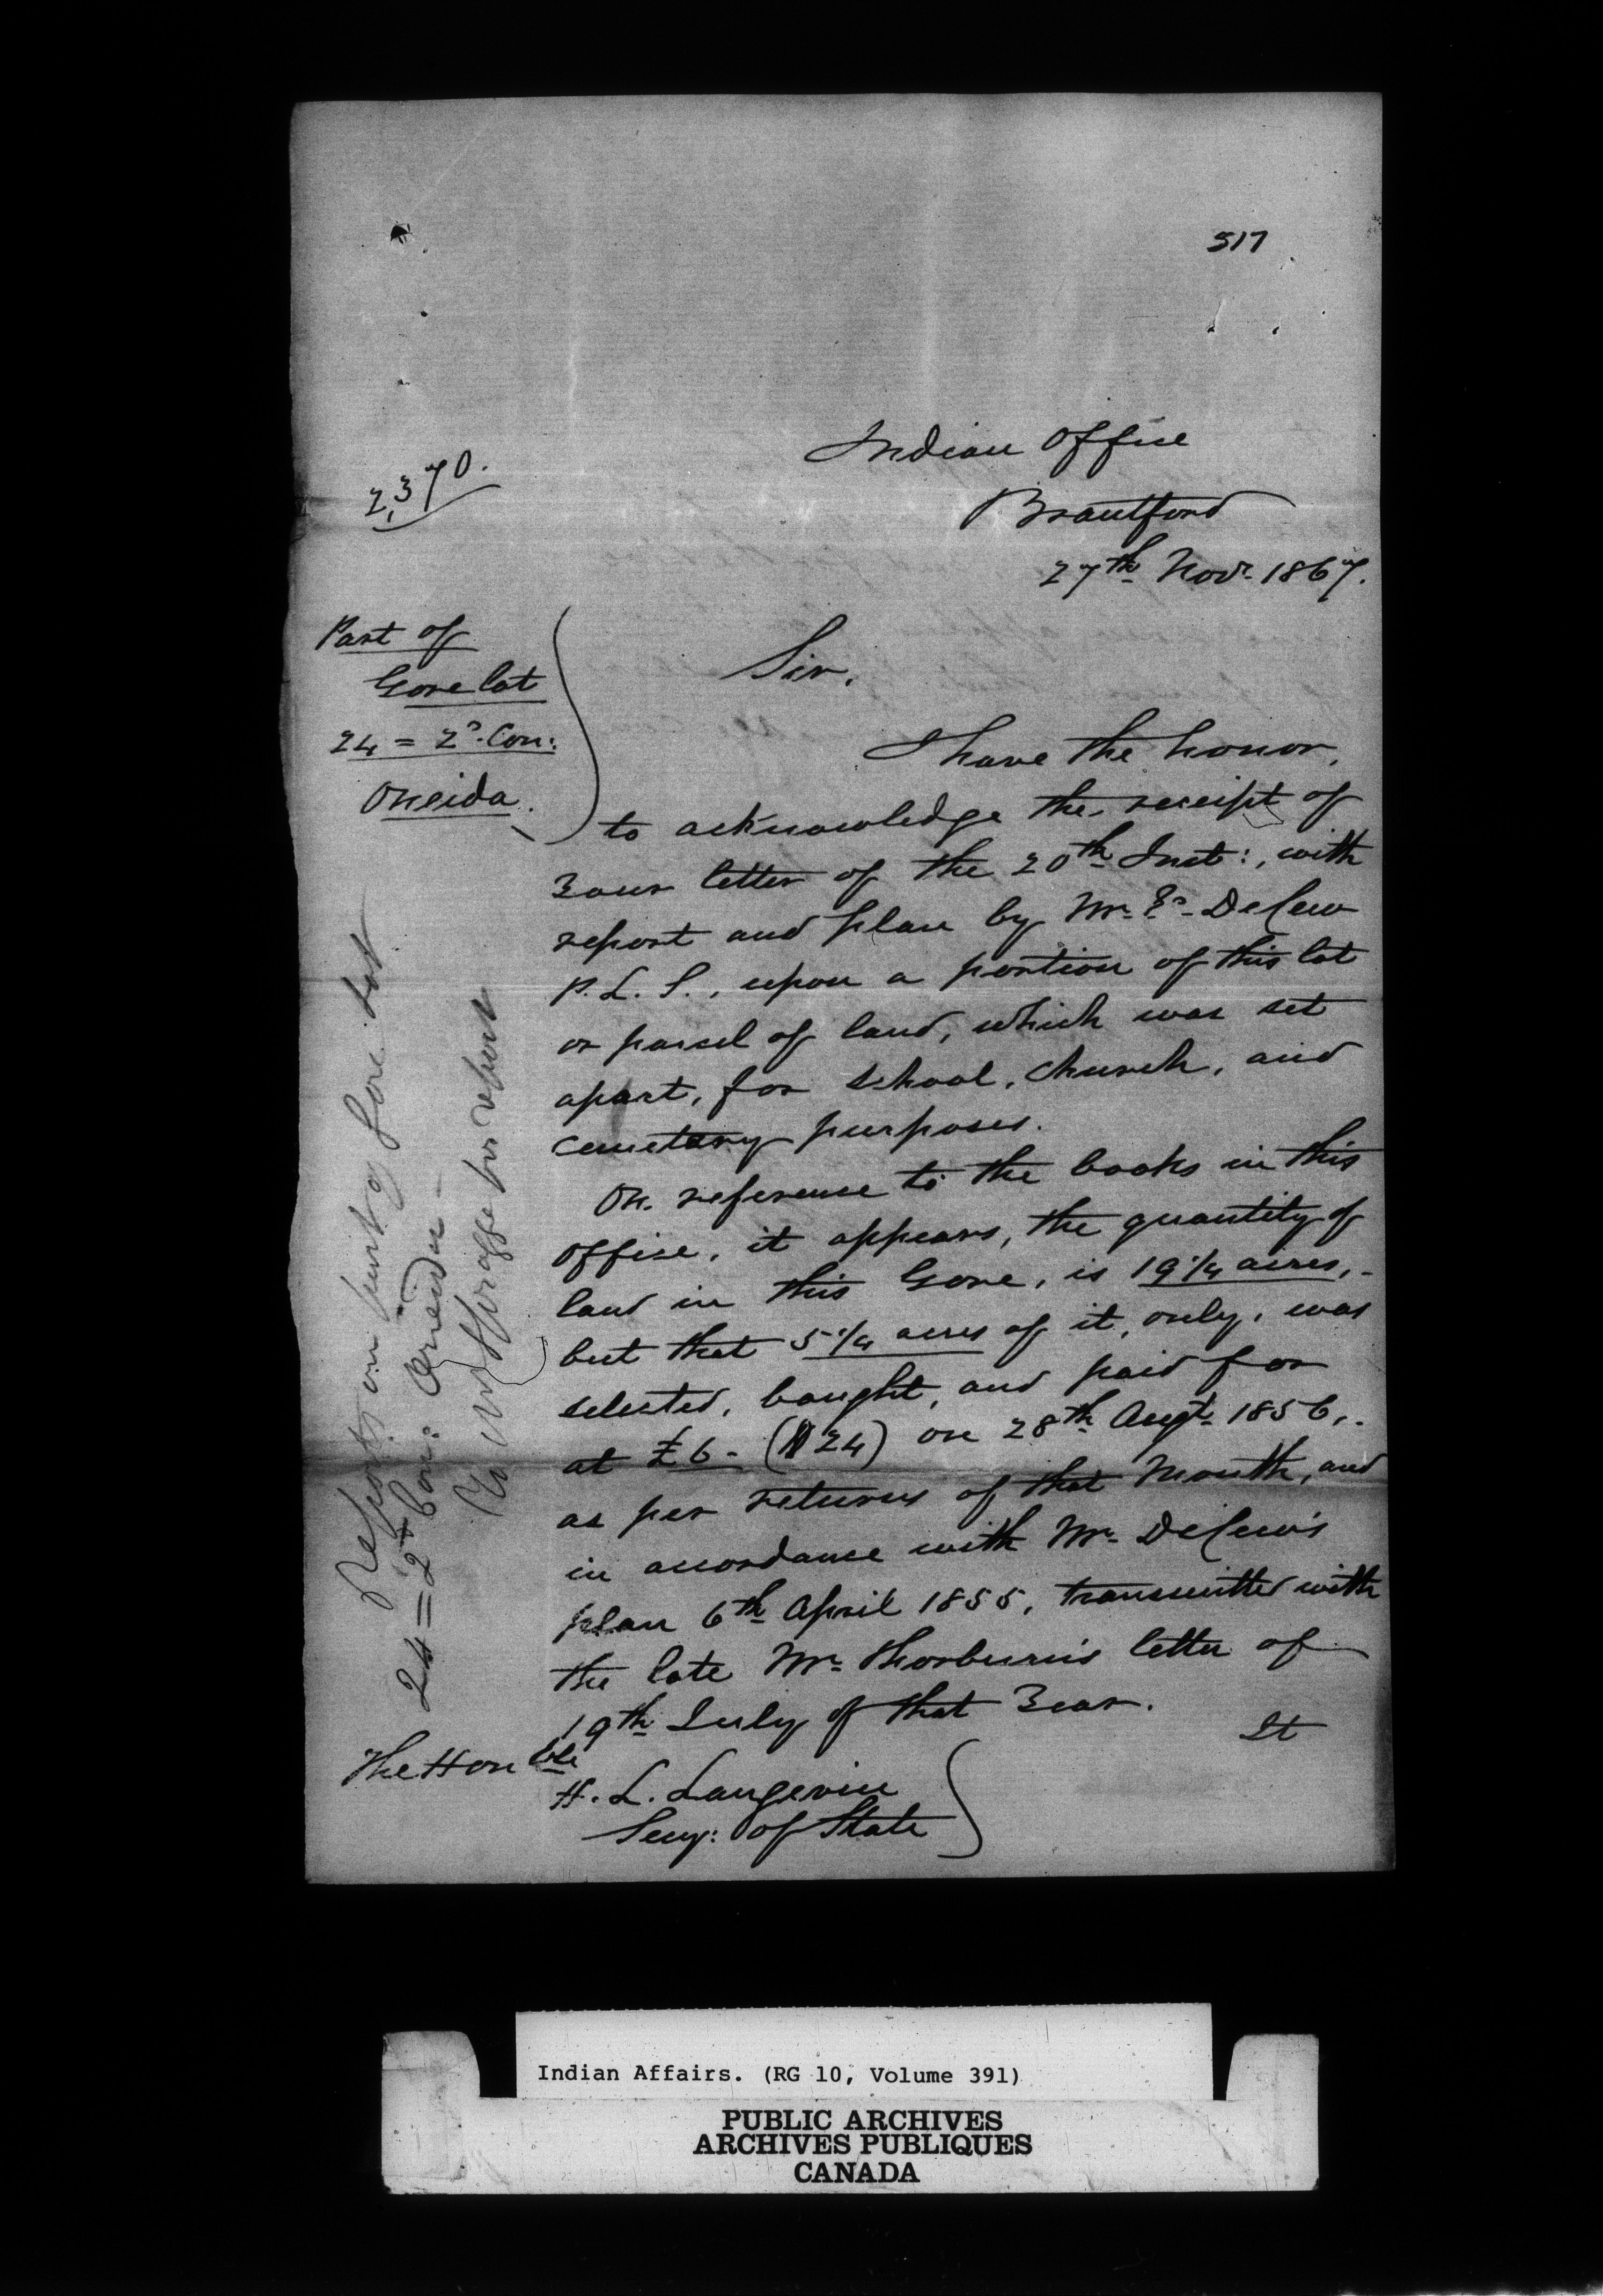 517
Indian Office
Brantford
27th Novr. 1867.
2,370.
Part of
Gore lot
24 = 2d. Con:
Oneida.
Sir,
I have the honor,
to acknowledge the receipt of
Your letter of the 20th Inst:, with
report and plan by Mr. DeCew
P.L.S., upon a portion of this lot
or parcel of land, which was set
apart, for school, church, and
cemetery purposes.
On reference to the books in this
Office, it appears, the quantity of
land in this Gore, is 19 1/4 acres,-
but that 5 1/4 acres of it, only, was
selected, bought, and paid for
at £6- ($24) on 28th Augt. 1856,
as per returns of that Month, and
in accordance with Mr. DeCew's
plan 6th April 1855, transmitted with
the late Mr. Thorburn's letter of
19th July of that Year.
It
The Honble
H. L. Langevin
Secy: of State
Reports on part of Gore Lot
24 = 2d Con: Oneida -
for report
Indian Affairs. (RG 10, Volume 391)
PUBLIC ARCHIVES
ARCHIVES PUBLIQUES
CANADA